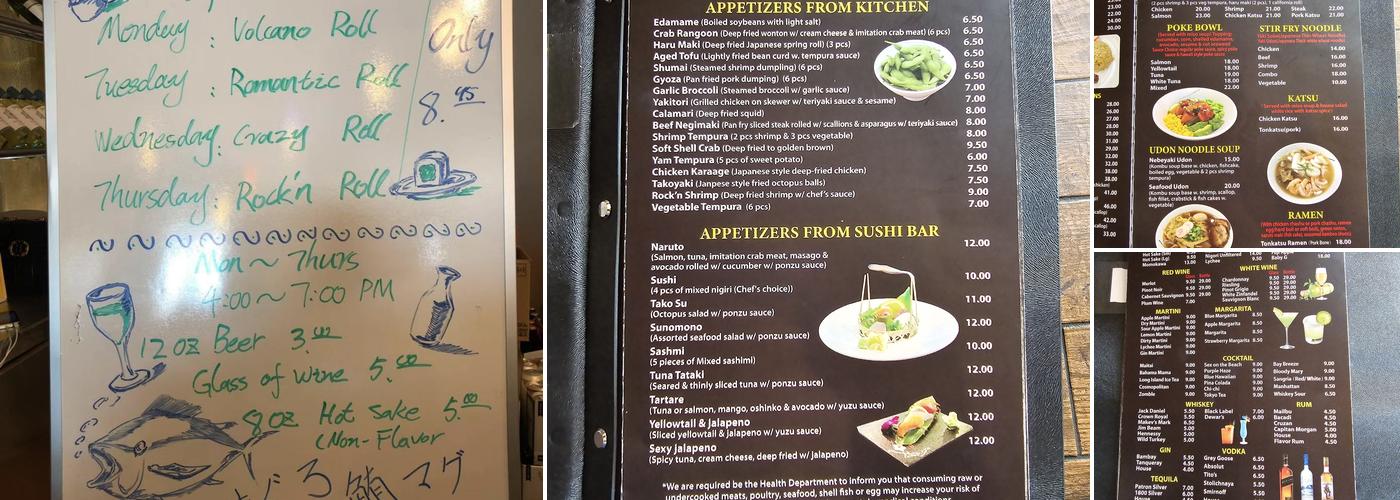 Monday : Volcano Roll
Tuesday : Romantic Roll
Wednesday : Crazy Roll
Thursday : Rock'n Roll
Only
8.95
Mon ~ Thurs
4:00 ~ 7:00 PM
12 oz Beer 3.00
Glass of wine 5.00
8 oz Hot Sake 5.00
(Non-Flavor
APPETIZERS FROM KITCHEN
Edamame (Boiled soybeans with light salt) 6.50
Crab Rangoon (Deep fried wonton w/ cream cheese & imitation crab meat) (6 pcs) 6.50
Haru Maki (Deep fried Japanese spring roll) (3 pcs) 6.50
Aged Tofu (Lightly fried bean curd w. tempura sauce) 6.50
Shumai (Steamed shrimp dumpling) (6 pcs) 6.50
Gyoza (Pan fried pork dumping) (6 pcs) 6.50
Garlic Broccoli (Steamed broccoli w/ garlic sauce) 7.00
Yakitori (Grilled chicken on skewer w/ teriyaki sauce & sesame) 7.00
Calamari (Deep fried squid) 8.00
Beef Negimaki (Pan fry sliced steak rolled w/ scallions & asparagus w/ teriyaki sauce) 8.00
Shrimp Tempura (2 pcs shrimp & 3 pcs vegetable) 8.00
Soft Shell Crab (Deep fried to golden brown) 9.50
Yam Tempura (5 pcs of sweet potato) 6.00
Chicken Karaage (Japanese style deep-fried chicken) 7.50
Takoyaki (Janpese style fried octopus balls) 7.50
Rock'n Shrimp (Deep fried shrimp w/ chef's sauce) 9.00
Vegetable Tempura (6 pcs) 7.00
APPETIZERS FROM SUSHI BAR
Naruto 12.00
(Salmon, tuna, imitation crab meat, masago &
avocado rolled w/ cucumber w/ ponzu sauce)
Sushi 10.00
(4 pcs of mixed nigiri (Chef's choice))
Tako Su 11.00
(Octopus salad w/ ponzu sauce)
Sunomono 12.00
(Assorted seafood salad w/ ponzu sauce)
Sashmi 10.00
(5 pieces of Mixed sashimi)
Tuna Tataki 12.00
(Seared & thinly sliced tuna w/ ponzu sauce)
Tartare 12.00
(Tuna or salmon, mango, oshinko & avocado w/ yuzu sauce)
Yellowtail & Jalapeno 12.00
(Sliced yellowtail & jalapeno w/ yuzu sauce)
Sexy Jalapeno 12.00
(Spicy tuna, cream cheese, deep fried w/ jalapeno)
*We are required be the Health Department to inform you that consuming raw or
undercooked meats, poultry, seafood, shell fish or egg may increase your risk of
Chicken 20.00 Shrimp 21.00 Steak 22.00
Salmon 23.00 Chicken Katsu 21.00 Pork Katsu 21.00
POKE BOWL
Salmon 18.00
Yellowtail 18.00
Tuna 19.00
White Tuna 18.00
Mixed 22.00
UDON NOODLE SOUP
Nebeyaki Udon 15.00
(Kombu soup base w. chicken, fishcake,
boiled egg, vegetable & 2 pcs shrimp
tempura)
Seafood Udon 20.00
(Kombu soup base w. shrimp, scallop,
fish fillet, crabstick & fish cakes w.
vegetable)
STIR FRY NOODLE
Chicken 14.00
Beef 16.00
Shrimp 16.00
Combo 18.00
Vegetable 10.00
KATSU
Chicken Katsu 16.00
Tonkatsu(pork) 16.00
RAMEN
Tonkatsu Ramen (Pork Bone) 18.00
RED WINE
Merlot
Pinot Noir
Cabernet Sauvignon 9.50 29.00
Plum Wine 7.00
WHITE WINE
Chardonnay 9.50 29.00
Riesling 9.50 29.00
Pinot Grigio 9.50 29.00
White Zinfandel 9.50 29.00
Sauvignon Blanc 9.50 29.00
MARTINI
Apple Martini 9.00
Dry Martini 9.00
Sour Apple Martini 9.00
Lemon Martini 9.00
Dirty Martini 9.00
Lychee Martini 9.00
Gin Martini 9.00
MARGARITA
Blue Margarita 8.50
Apple Margarita 8.50
Margarita 8.50
Strawberry Margarita 8.50
COCKTAIL
Maitai 9.00
Bahama Mama 9.00
Long Island Ice Tea 9.00
Cosmopolitan 9.00
Zomble 9.00
Sex on the Beach 9.00
Purple Haze 9.00
Blue Hawaiian 9.00
Pina Colada 9.00
Chi-chi 9.00
Tokyo Tea 9.00
Bay Breeze 9.00
Bloody Mary 9.00
Sangria (Red/White) 9.00
Manhattan 8.50
Whiskey Sour 6.50
WHISKEY
Jack Daniel 5.50
Crown Royal 5.50
Maker's Mark 6.50
Jim Beam 5.00
Hennessy 5.00
Wild Turkey 5.00
Black Label 7.00
Dewar's 6.00
RUM
Mailbu 4.50
Bacadi 4.50
Cruzan 4.50
Capitan Morgan 5.00
House 4.00
Flavor Rum 4.50
GIN
Bambay 5.50
Tanqueray 4.50
House 4.00
TEQUILA
Patron Silver 7.00
1800 Silver 6.00
VODKA
Grey Goose 6.50
Absolut 6.50
Tito's 6.50
Stolichnaya 5.50
Smirnoff